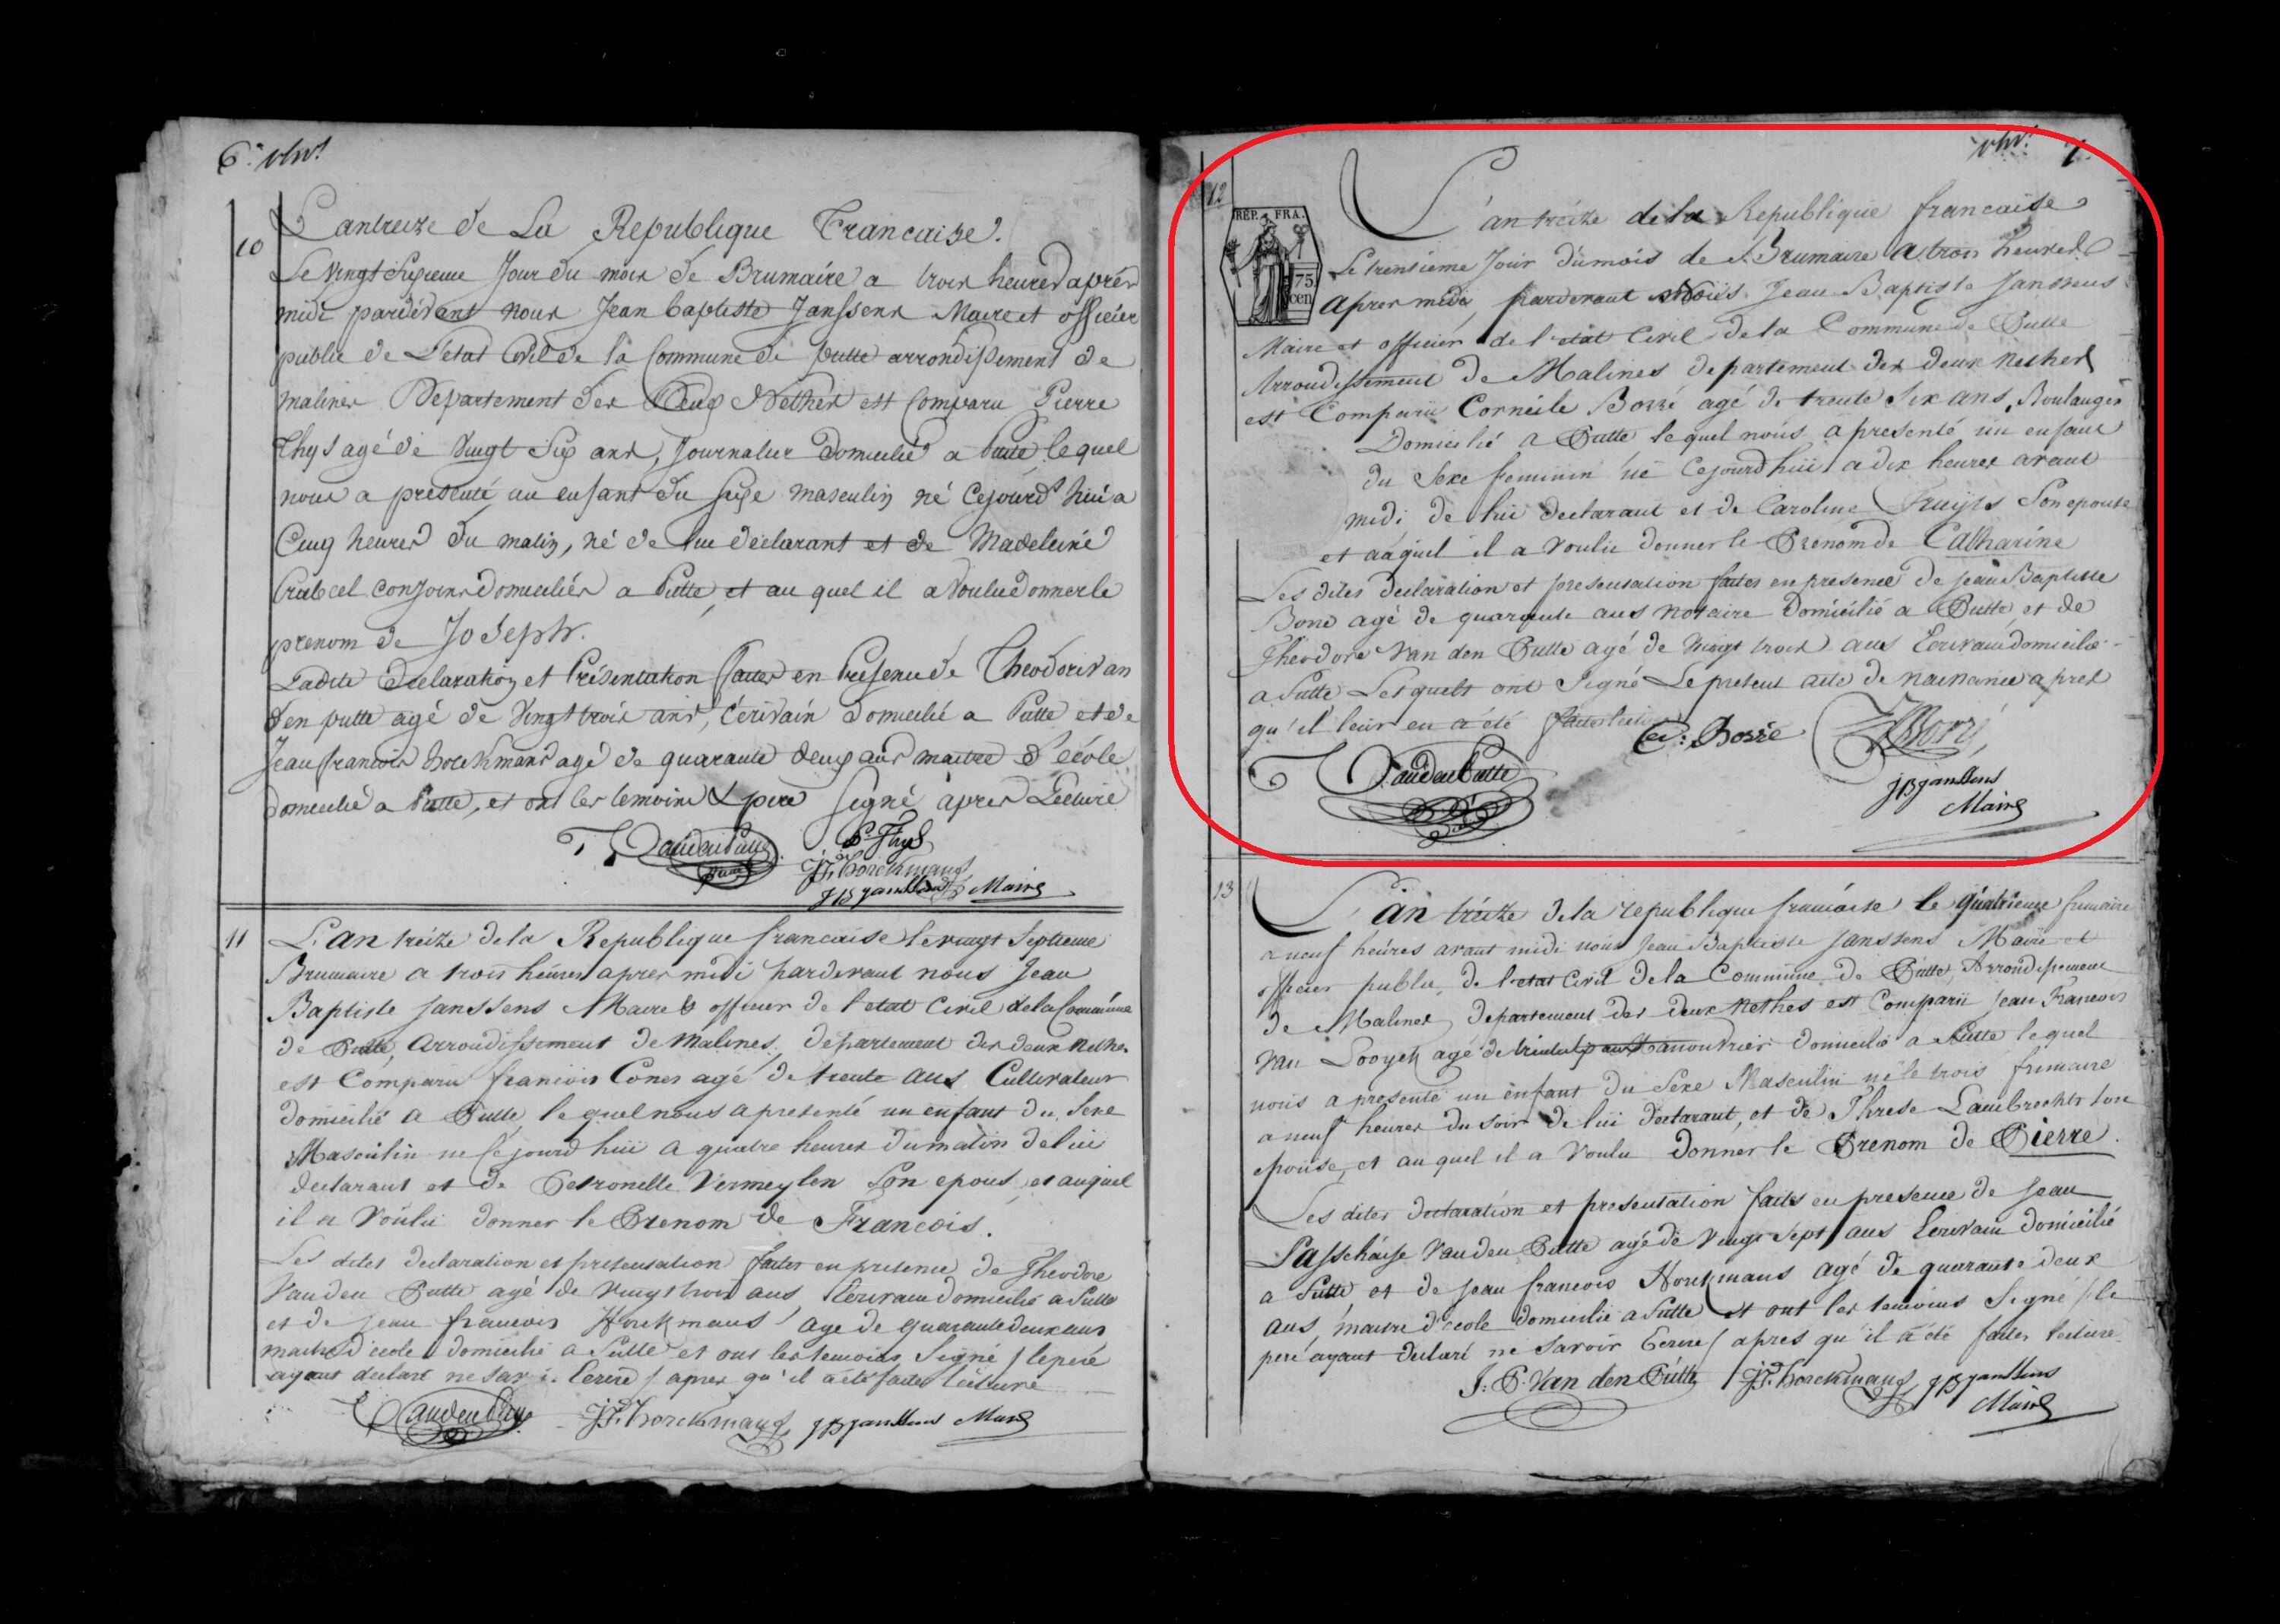 6.
10
L'an treize de La Republique Francaise.
Le vingt Sixieme Jour du mois de Brumaire a trois heures aprés
midi pardevant nous Jean baptiste Janssens Maire et officier
public de L'etat Civil de la Commune de Putte arrondissement de
malines Departement des Deux Nethes est Comparu Pierre
Thys agé de Vingt Six ans, Journalier Domicilié a Putte, le quel
nous a presenté, un enfant du sexe masculin né Cejourd'hui a
Cinq heures du matin, né de lui déclarant et de Madeleine
conjoins domiciliés a Putte, et au quel il a Voulu donner le
prenom de Joseph.
Ladite Declaration et Présentation faites en Presence de Theodor van
den putte agé de Vingt trois ans, écrivain domicilié a Putte et de
Jean francois horckmans agé de quarante deux ans maitre d'école
domicilié a Putte, et ont les temoins & pere signé apres Lecture
T. VandenPutte P. Thys
J.F. horckmans
JB Janssens Maire
11
L'an treize de la Republique francaise le vingt Septieme
Brumaire a trois heures apres midi pardevant nous Jean
Baptiste Janssens Maire & officier de l'etat Civil de la Commune
de Putte, Arrondissement de Malines, departement des deux Nethes
est Comparu francois Cones agé de trente ans Cultivateur
domicilié a Putte, le quel nous a presenté un enfant du Sexe
Masculin né Ce jourd'hui a quatre heures du matin de lui
declarant et de Petronelle Vermeylen Son epouse, et auquel
il a Voulu donner le Prenom de Francois.
Les dites declaration et presentation faites en presence de Theodore
Vanden Putte agé de Vingt trois ans, Ecrivain domicilié a Putte
et de Jean francois Horckmans agé de quarante deux ans
maitre d'ecole domicilié a Putte et ont les temoins Signé / le pere
ayant declaré ne Savoir Ecrire / apres qu'il a été faites lecture
T VandenPutte J.F. horckmans JB Janssens Maire
7
12
REP. FRA.
75
cen
L'an treize de la Republique francaise
Le trentieme Jour du mois de Brumaire a trois heures
apres midi, pardevant Nous Jean Baptiste Janssens
Maire et officier de l'etat Civil de la Commune de Putte
Arrondissement de Malines departement des deux Nethes
est Comparu Corneile Borré agé de trente Six ans, Boulanger
Domicilié a Putte le quel nous a presenté un enfant
du Sexe feminin né Cejourd'hui a dix heures avant
midi de lui declarant et de Caroline Fruyts Son epouse
et auquel il a Voulu donner le Prenom de Catharine
Les dites declaration et presentation faites en presence de Jean Baptiste
agé de quarante ans Notaire Domicilié a Putte, et de
Theodore Van den Putte agé de Vingt trois ans Ecrivain domicilié
a Putte Lesquels ont Signé Le present acte de naissance apres
qu'il leur en a été faites lecture
C: Borré
T VandenPutte
JB Janssens
Maire
13
L'an treize de la republique francaise le quatrieme frimaire
a neuf heures avant midi nous Jean Baptiste Janssens Maire et
officier public, de l'etat Civil de la Commune de Putte, Arrondissement
de Malines, departement des deux Nethes est Comparu Jean Francois
Van Looyck agé de domicilié a Putte le quel
nous a presenté un enfant du Sexe Masculin né le trois frimaire
a neuf heures du soir de lui declarant, et de Threse Lambrechts son
epouse, et au quel il a Voulu donner le Prenom de Pierre.
Les dites declaration et presentation faites en presence de Jean
Passchaise Vanden Putte agé de Vingt Sept ans Ecrivain domicilié
a Putte et de Jean francois Horckmans agé de quarante deux
ans, maitre d'ecole domicilié a Putte et ont les temoins Signé / le
pere ayant declaré ne Savoir Ecrire / apres qu'il a été faites lecture
J: P. Van den Putte J.F. horckmans JB Janssens
Maire